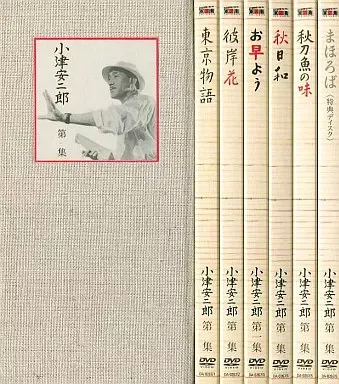 小津安二郎
第 集
東京物語
小津安二郎 第 集
DVD
VIDEO
彼岸花
小津安二郎 第 集
DVD
VIDEO
お早よう
小津安二郎 第 集
DVD
VIDEO
秋日和
小津安二郎 第 集
DVD
VIDEO
秋刀魚の味
小津安二郎 第 集
DVD
VIDEO
まほろば
(特典ディスク)
小津安二郎 第 集
DVD
VIDEO